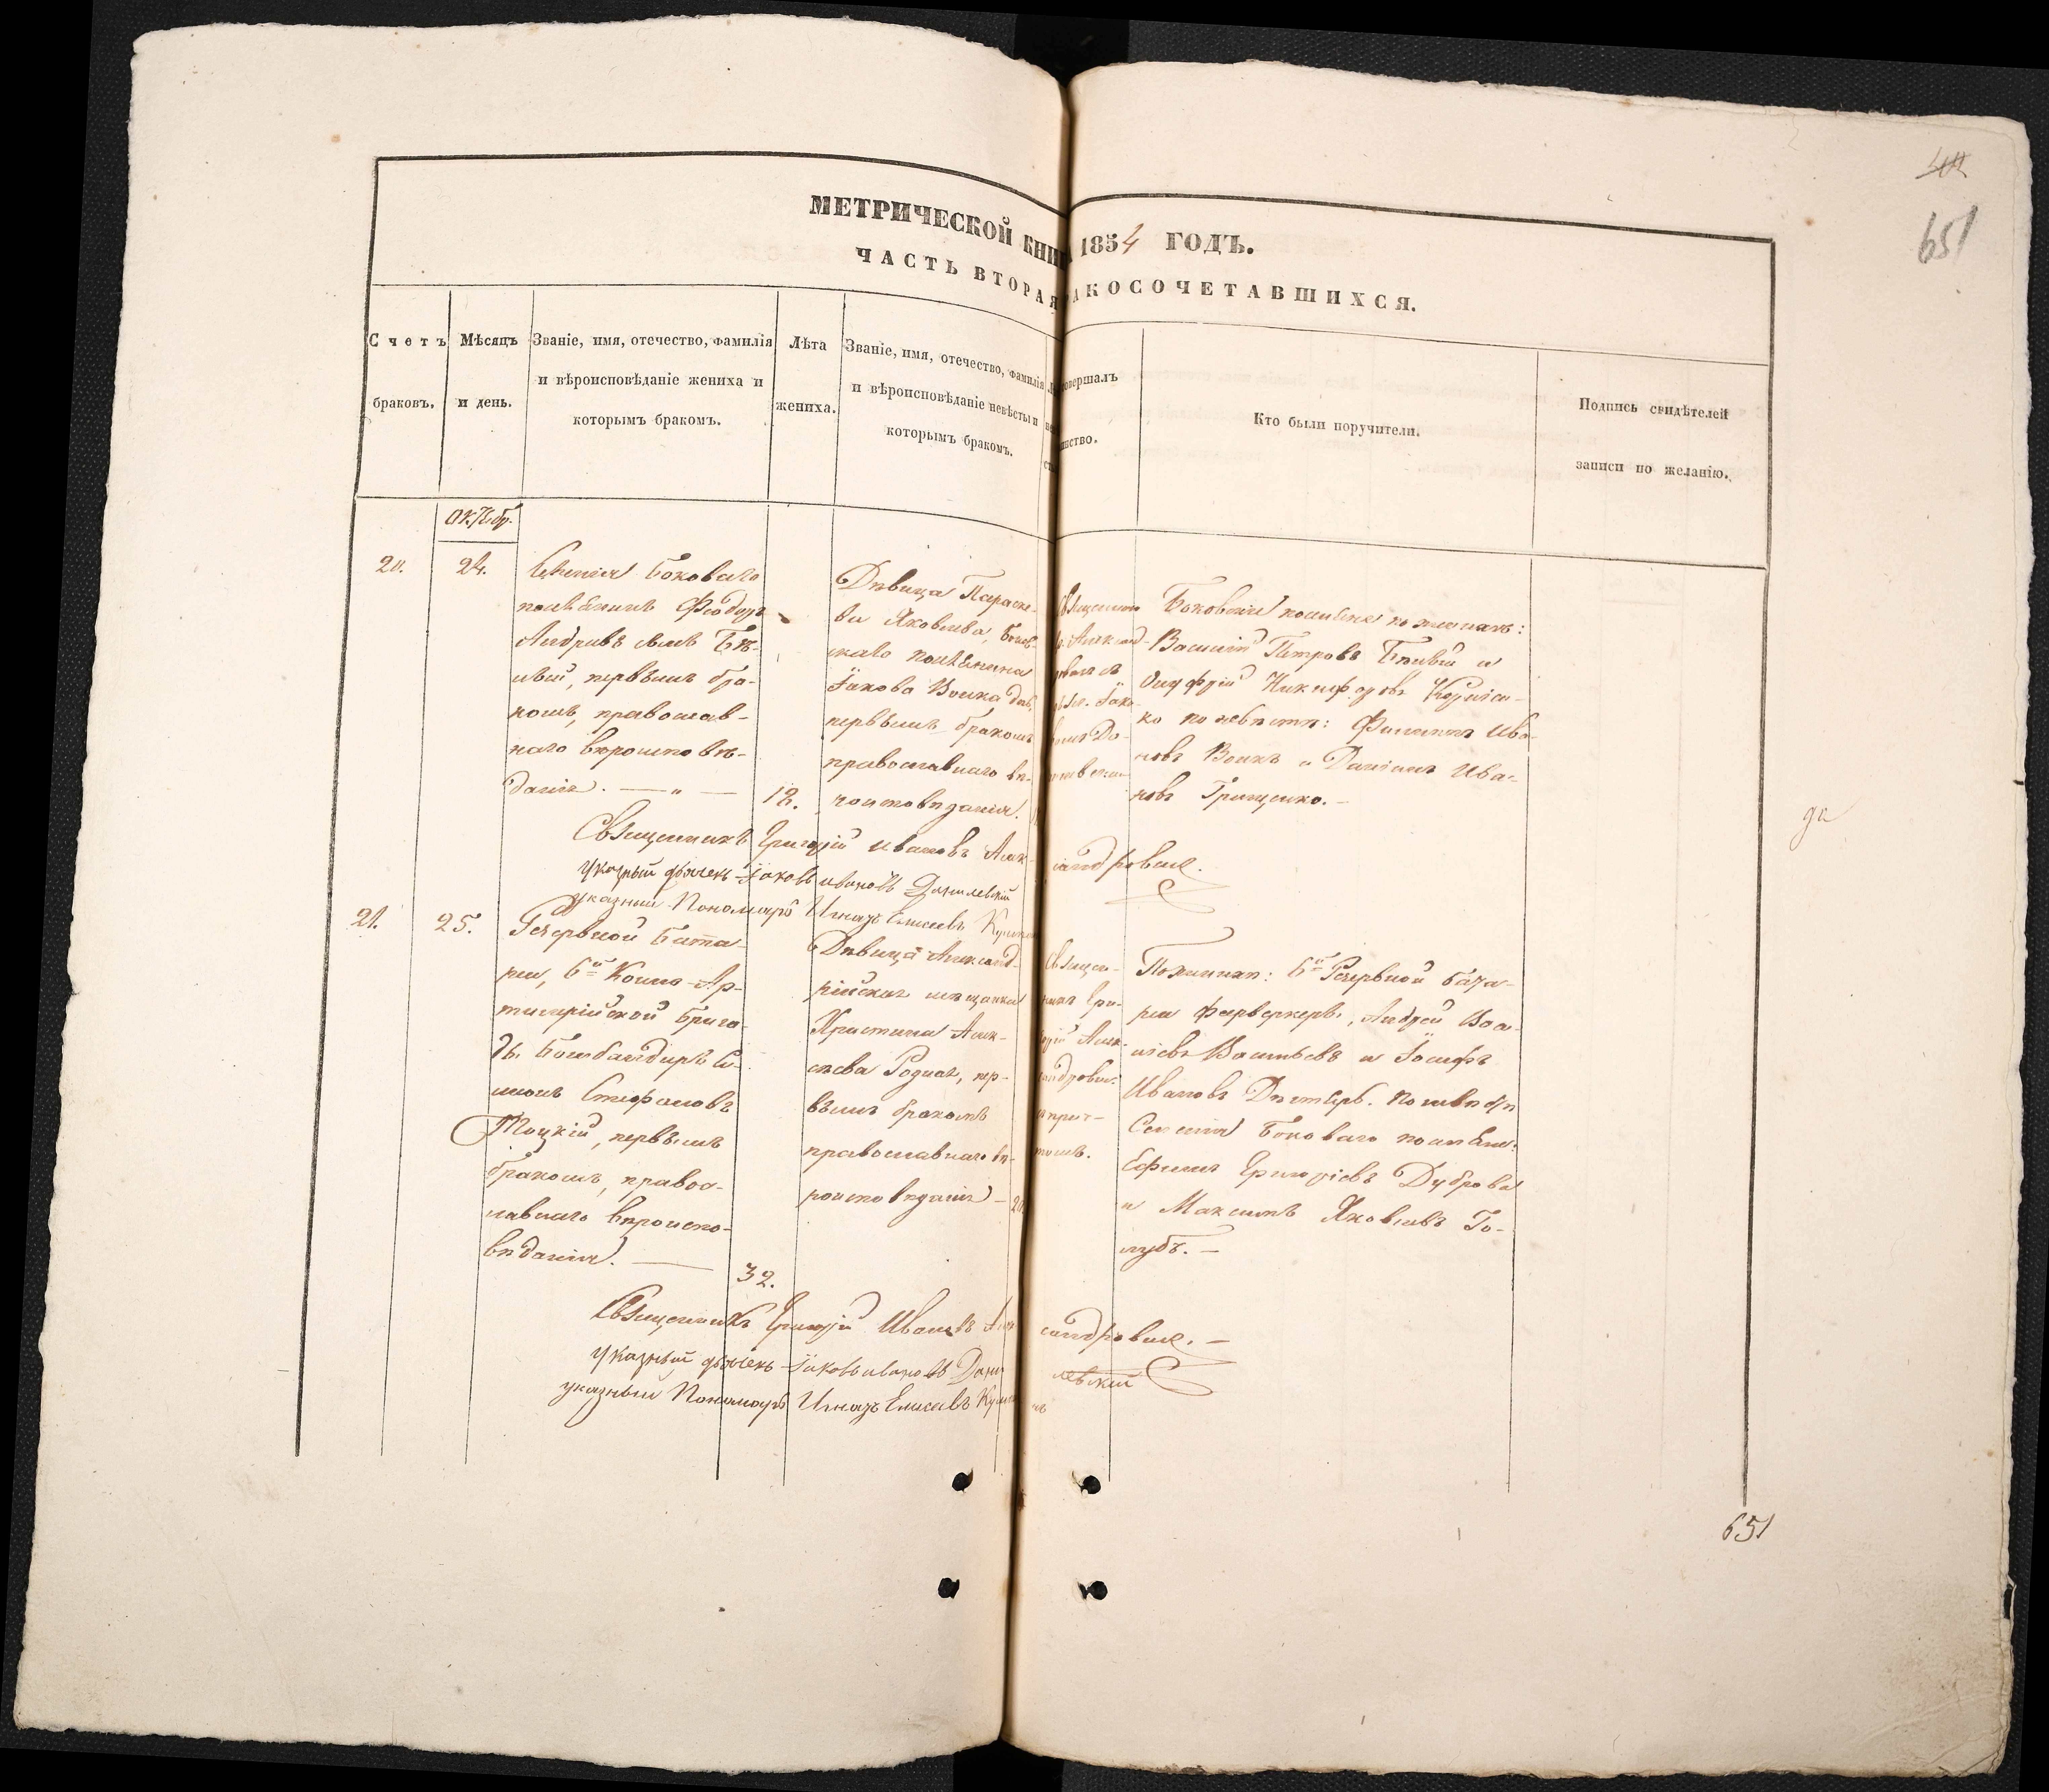 651
МЕТРИЧЕСКОЙ КНИГ 1854 ГОДЪ.
ЧАСТЬ ВТОРАЯ РАКОСОЧЕТАВШИХСЯ.
Счетъ
браковъ.
Мѣсяцъ
и день.
Званіе, имя, отечество, фамилія
и вѣроисповѣданіе жениха и
которымъ бракомъ.
Лѣта
жениха.
Званіе, имя, отечество, фамилія
и вѣроисповѣданіе невѣсты и
которымъ бракомъ.
совершалъ
инство.
Кто были поручители.
Подпись свидѣтелей
записи по желанію.
Октбр.
20.
24.
Селенія Боковаго
поселянинъ Феодоръ
Андреевъ сынъ Бѣ-
лый, первымъ бра-
комъ, православ-
наго вѣроисповѣ-
данія. — „ —
18.
Дѣвица Параске-
ва Яковлева, Боков-
скаго поселянина
Іакова Вовка дочь,
первымъ бракомъ
православнаго вѣ-
роисповѣданія.
Священни
Боковскіе поселяне по женихѣ:
Василій Петровъ Бѣлый и
Онуфрій Никифоровъ
ко по невѣстѣ: Филиппъ Ива-
новъ Вовкъ и Даніилъ Ива-
новъ Грищенко. —
Священникъ Григорій Ивановъ Алек сандровичъ.
указный дьячекъ Іаковъ Ивановъ Данилевскій
указный Пономарь Игнатъ Елисеевъ
21.
25.
Резервной Бата-
реи, 6й Конно-Ар-
тилерійской Брига-
ды Бомбандиръ Си-
меонъ Стефановъ
Тоцкій, первымъ
бракомъ, правос-
лавнаго вѣроиспо-
вѣданія. —
32.
Дѣвица Александ-
рійская мѣщанка
Христина Алек-
сѣева Родная, пер-
вымъ бракомъ
православнаго вѣ-
роисповѣданія — 20
Священ-
никъ Гри-
горій Алек-
сандровичъ
съ прич-
томъ.
По женихѣ: 6й Резервной Бата-
реи фейерверкеръ, Андрей Вас-
иліевъ Васильевъ и Іосифъ
Ивановъ По невѣстѣ
Селенія Боковаго поселяне:
Ефимъ Григоріевъ Дуброва
и Максимъ Яковлевъ Го-
лубъ. —
Священникъ Григорій Ивановъ Алек сандровичъ. —
указный дьячекъ Іаковъ Ивановъ Дани левскій
указный Пономарь Игнатъ Елисеевъ
651